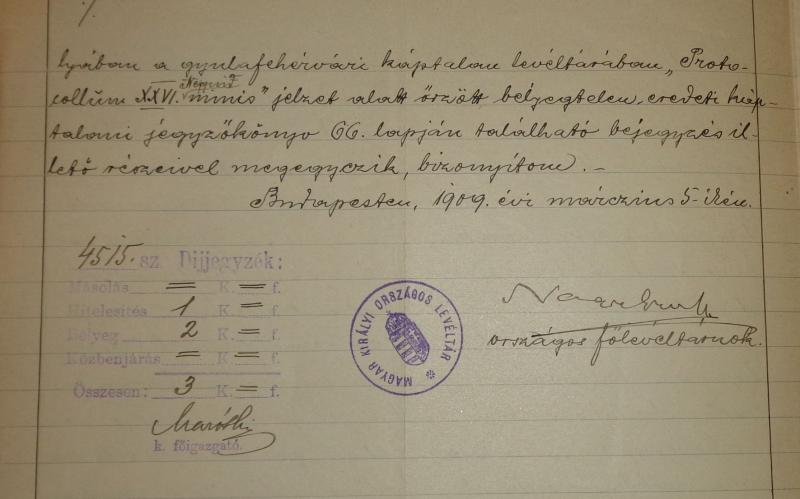 lyában a gyulafehérvári káptalan levéltárában „Proto-
collum XXVI. minis" jelzet alatt őrzött bélyegtelen, eredeti káp-
talani jegyzőkönyv 66. lapján található bejegyzés il-
lető részeivel megegyezik, bizonyítom. –
Budapesten, 1909. évi márczius 5-ikén.
4515. sz. Díjjegyzék:
Másolás = K. = f.
Hitelesítés 1 K. = f.
Bélyeg 2 K. = f.
Közbenjárás = K. = f.
Összesen: 3 K. = f.
k. főigazgató.
MAGYAR KIRÁLYI ORSZÁGOS LEVÉLTÁR
országos főlevéltárnok.